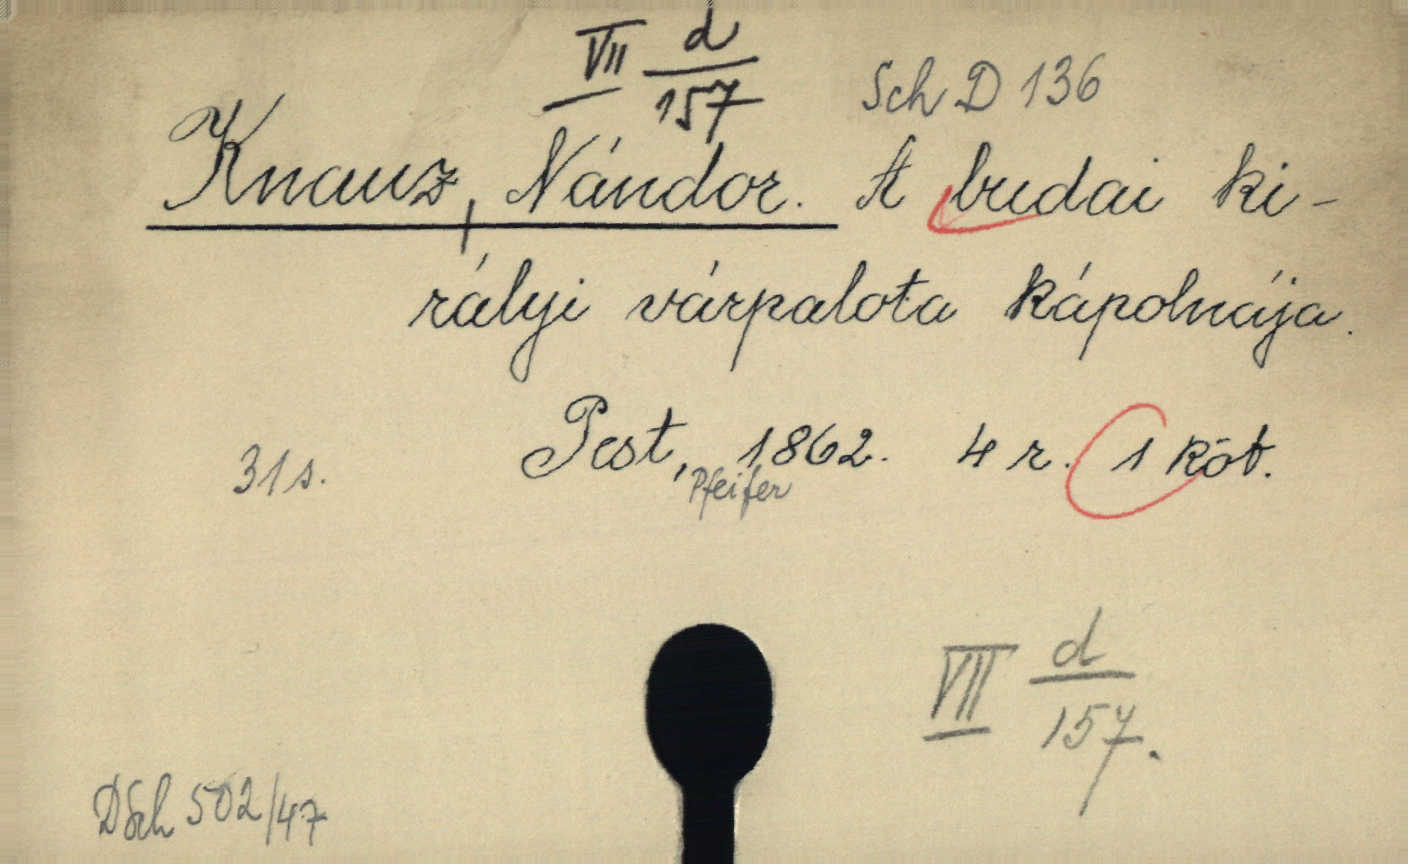 VII d/157
Sch D 136
Knauz, Nándor. A budai ki-
rályi várpalota kápolnája.
Pest, 1862. 4 r. 1 köt.
Pfeifer
31 s.
VII d/157.
DSch 502/47